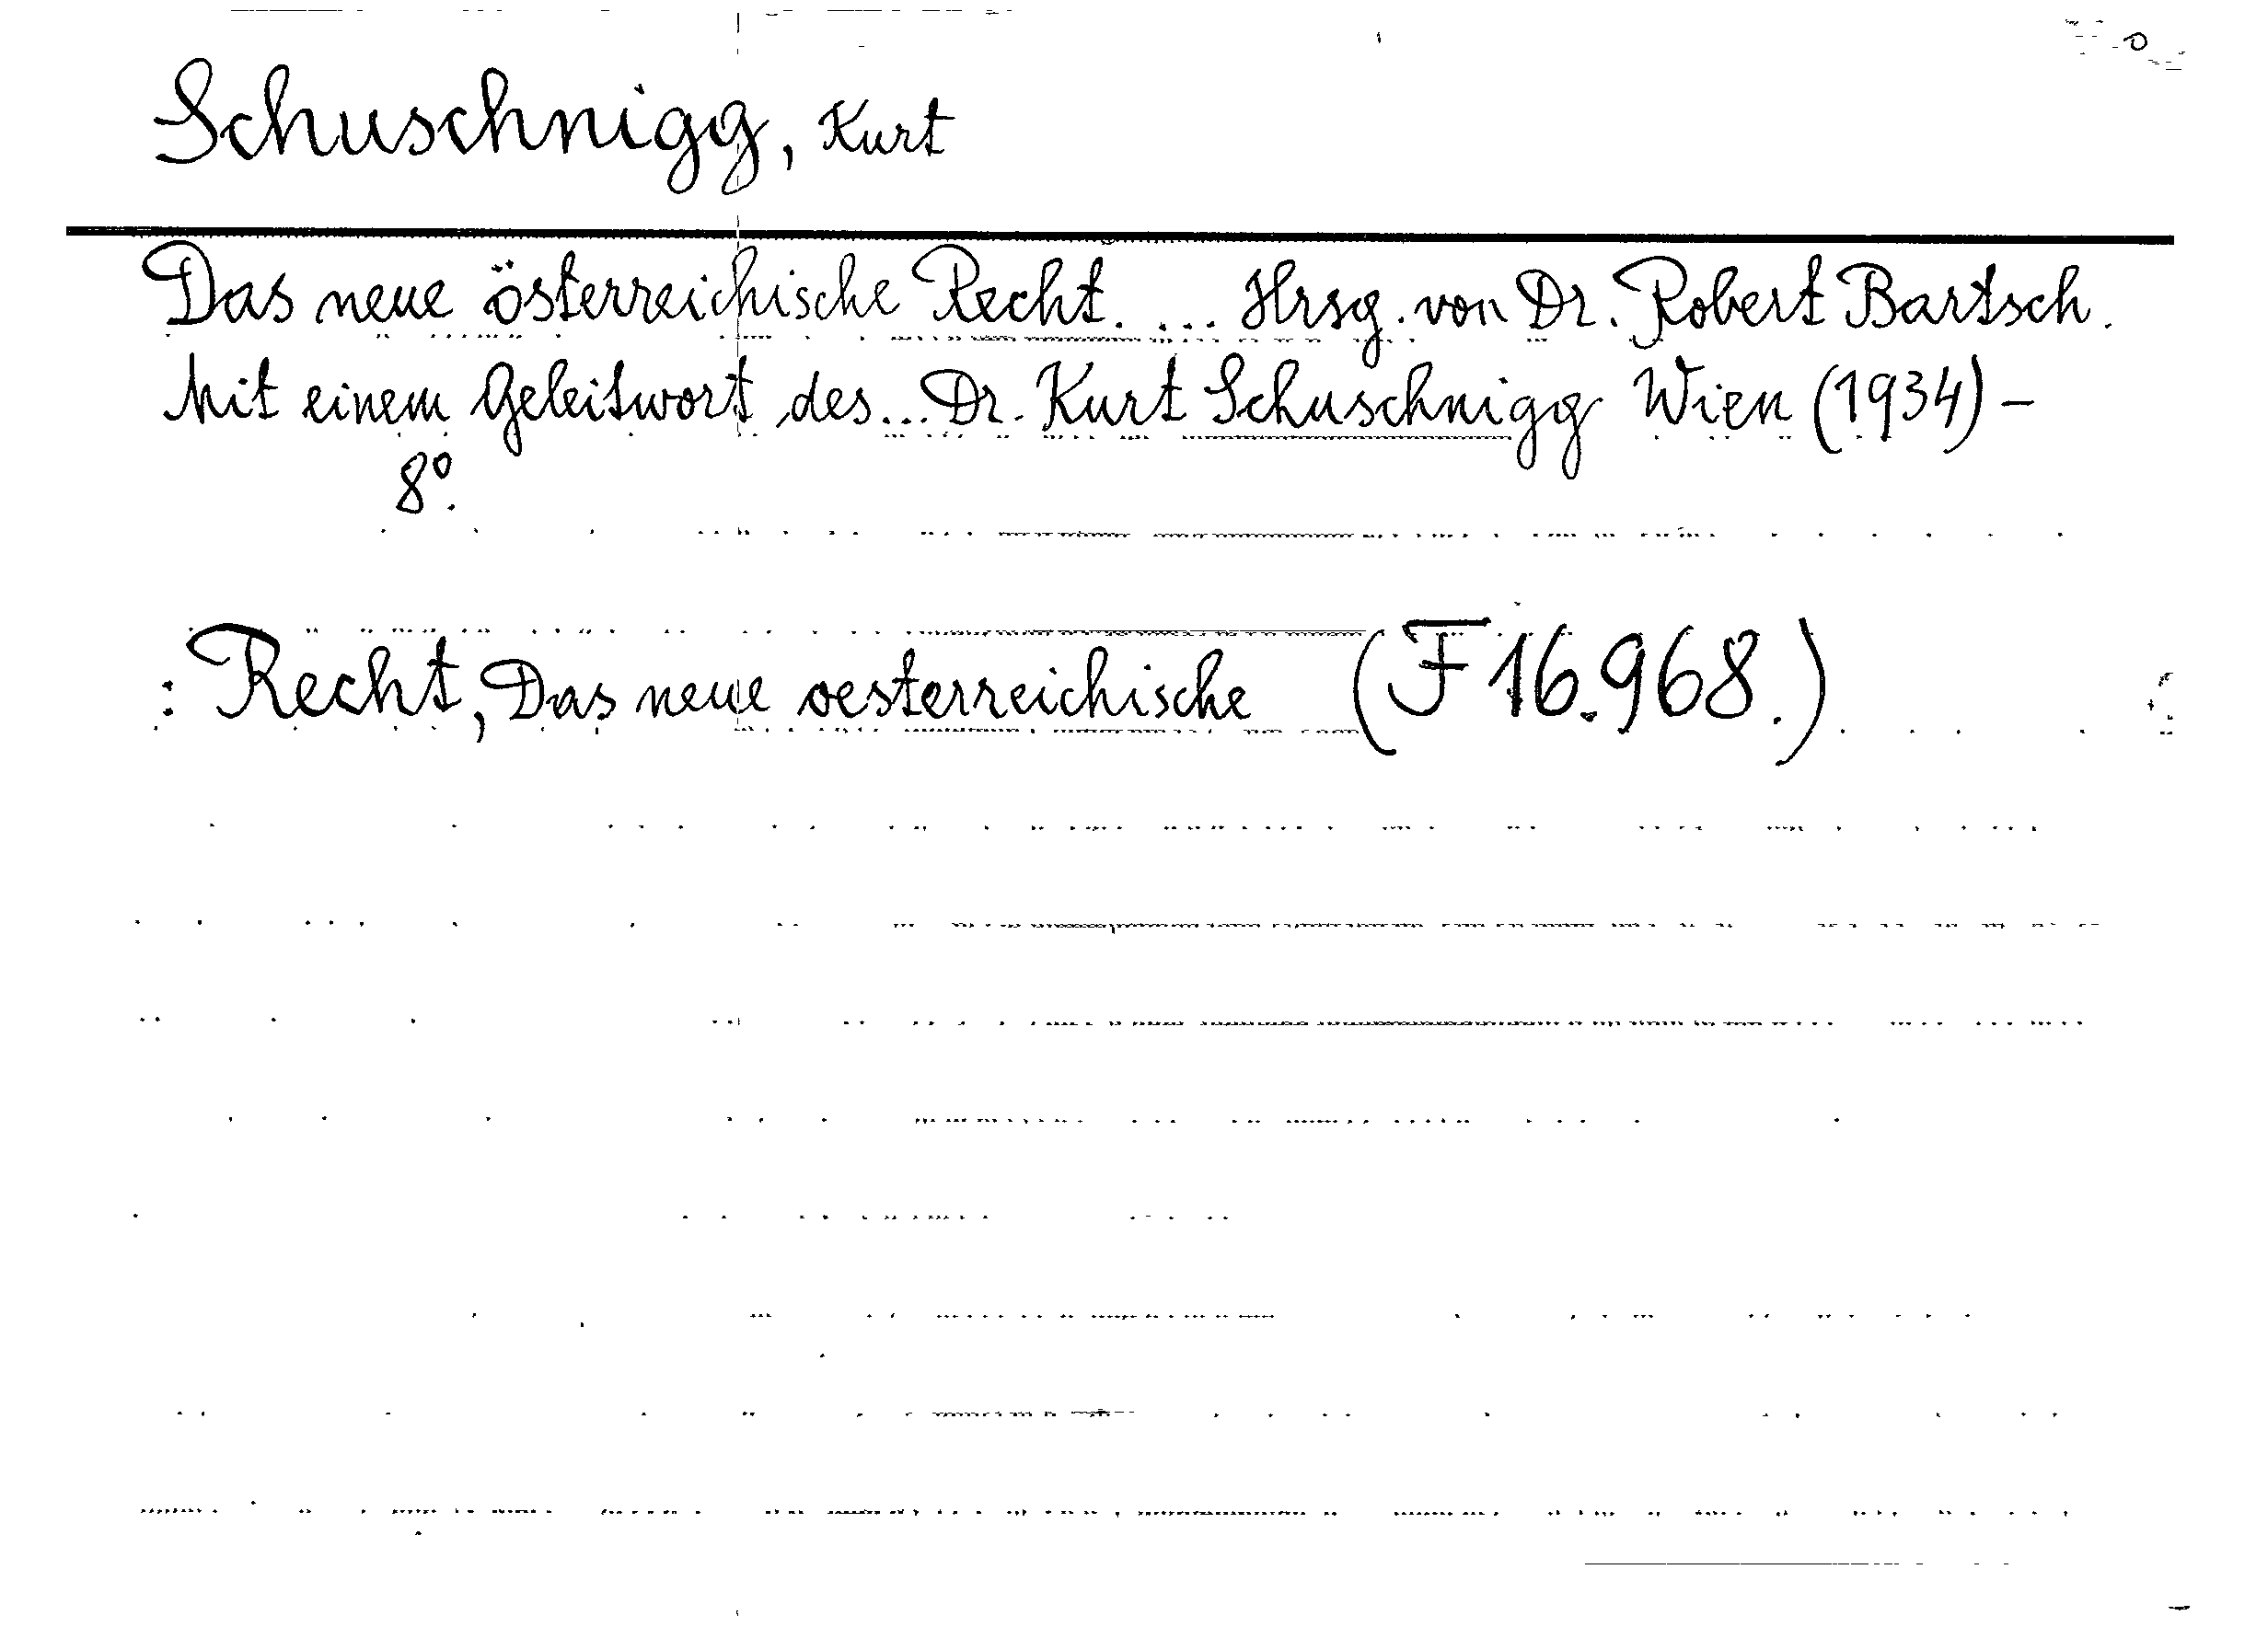 Schuschnigg, Kurt
Das neue österreichische Recht. ... Hrsg. von Dr. Robert Bartsch.
Mit einem Geleitwort des... Dr. Kurt Schuschnigg Wien (1934) –
8°.
: Recht, Das neue oesterreichische (F 16.968.)